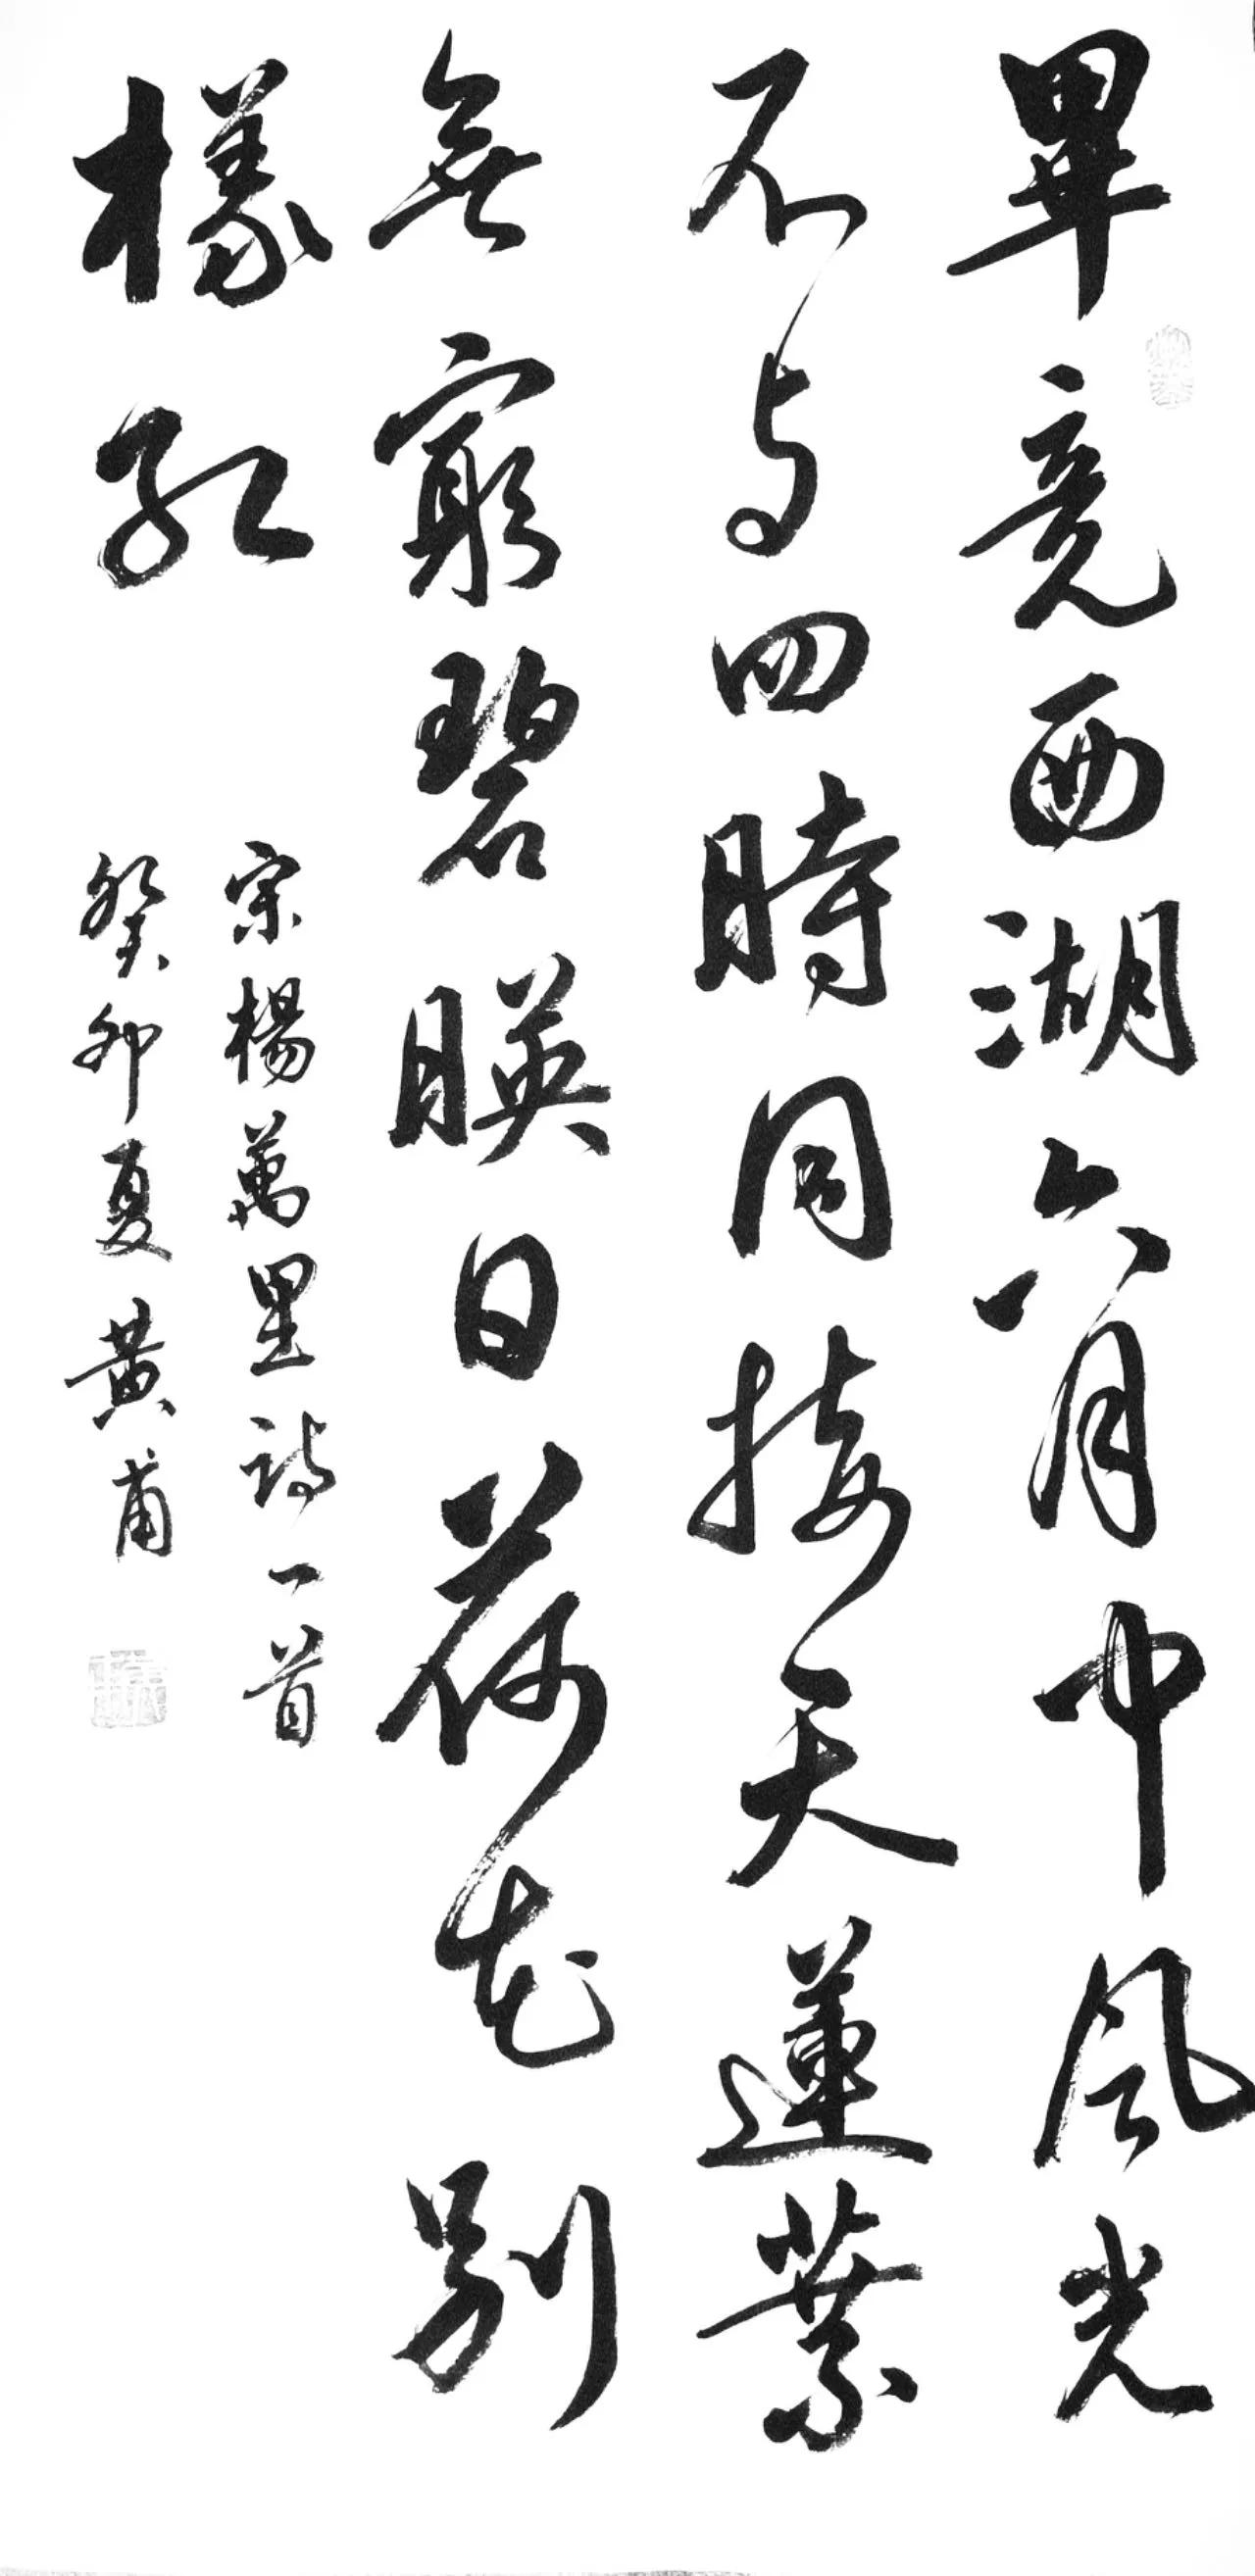 畢竟西湖六月中風光
不与四時同接天蓮葉
無窮碧暎日荷花別
樣紅
宗楊萬里詩一首
癸卯夏黄甫